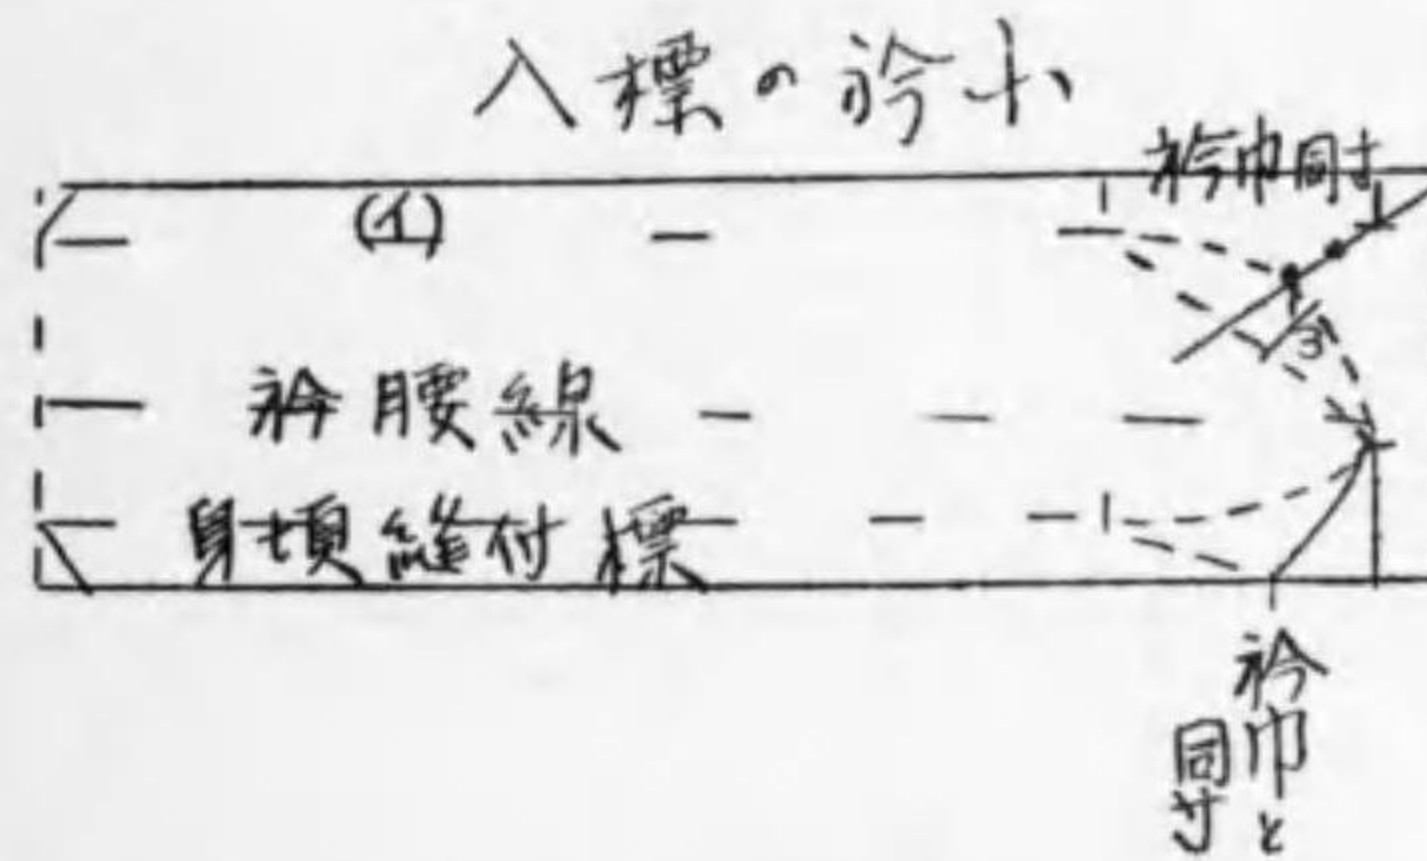 小衿の標入
衿巾同寸
(イ)
3
衿腰線
身頃縫付標
衿巾と
同寸